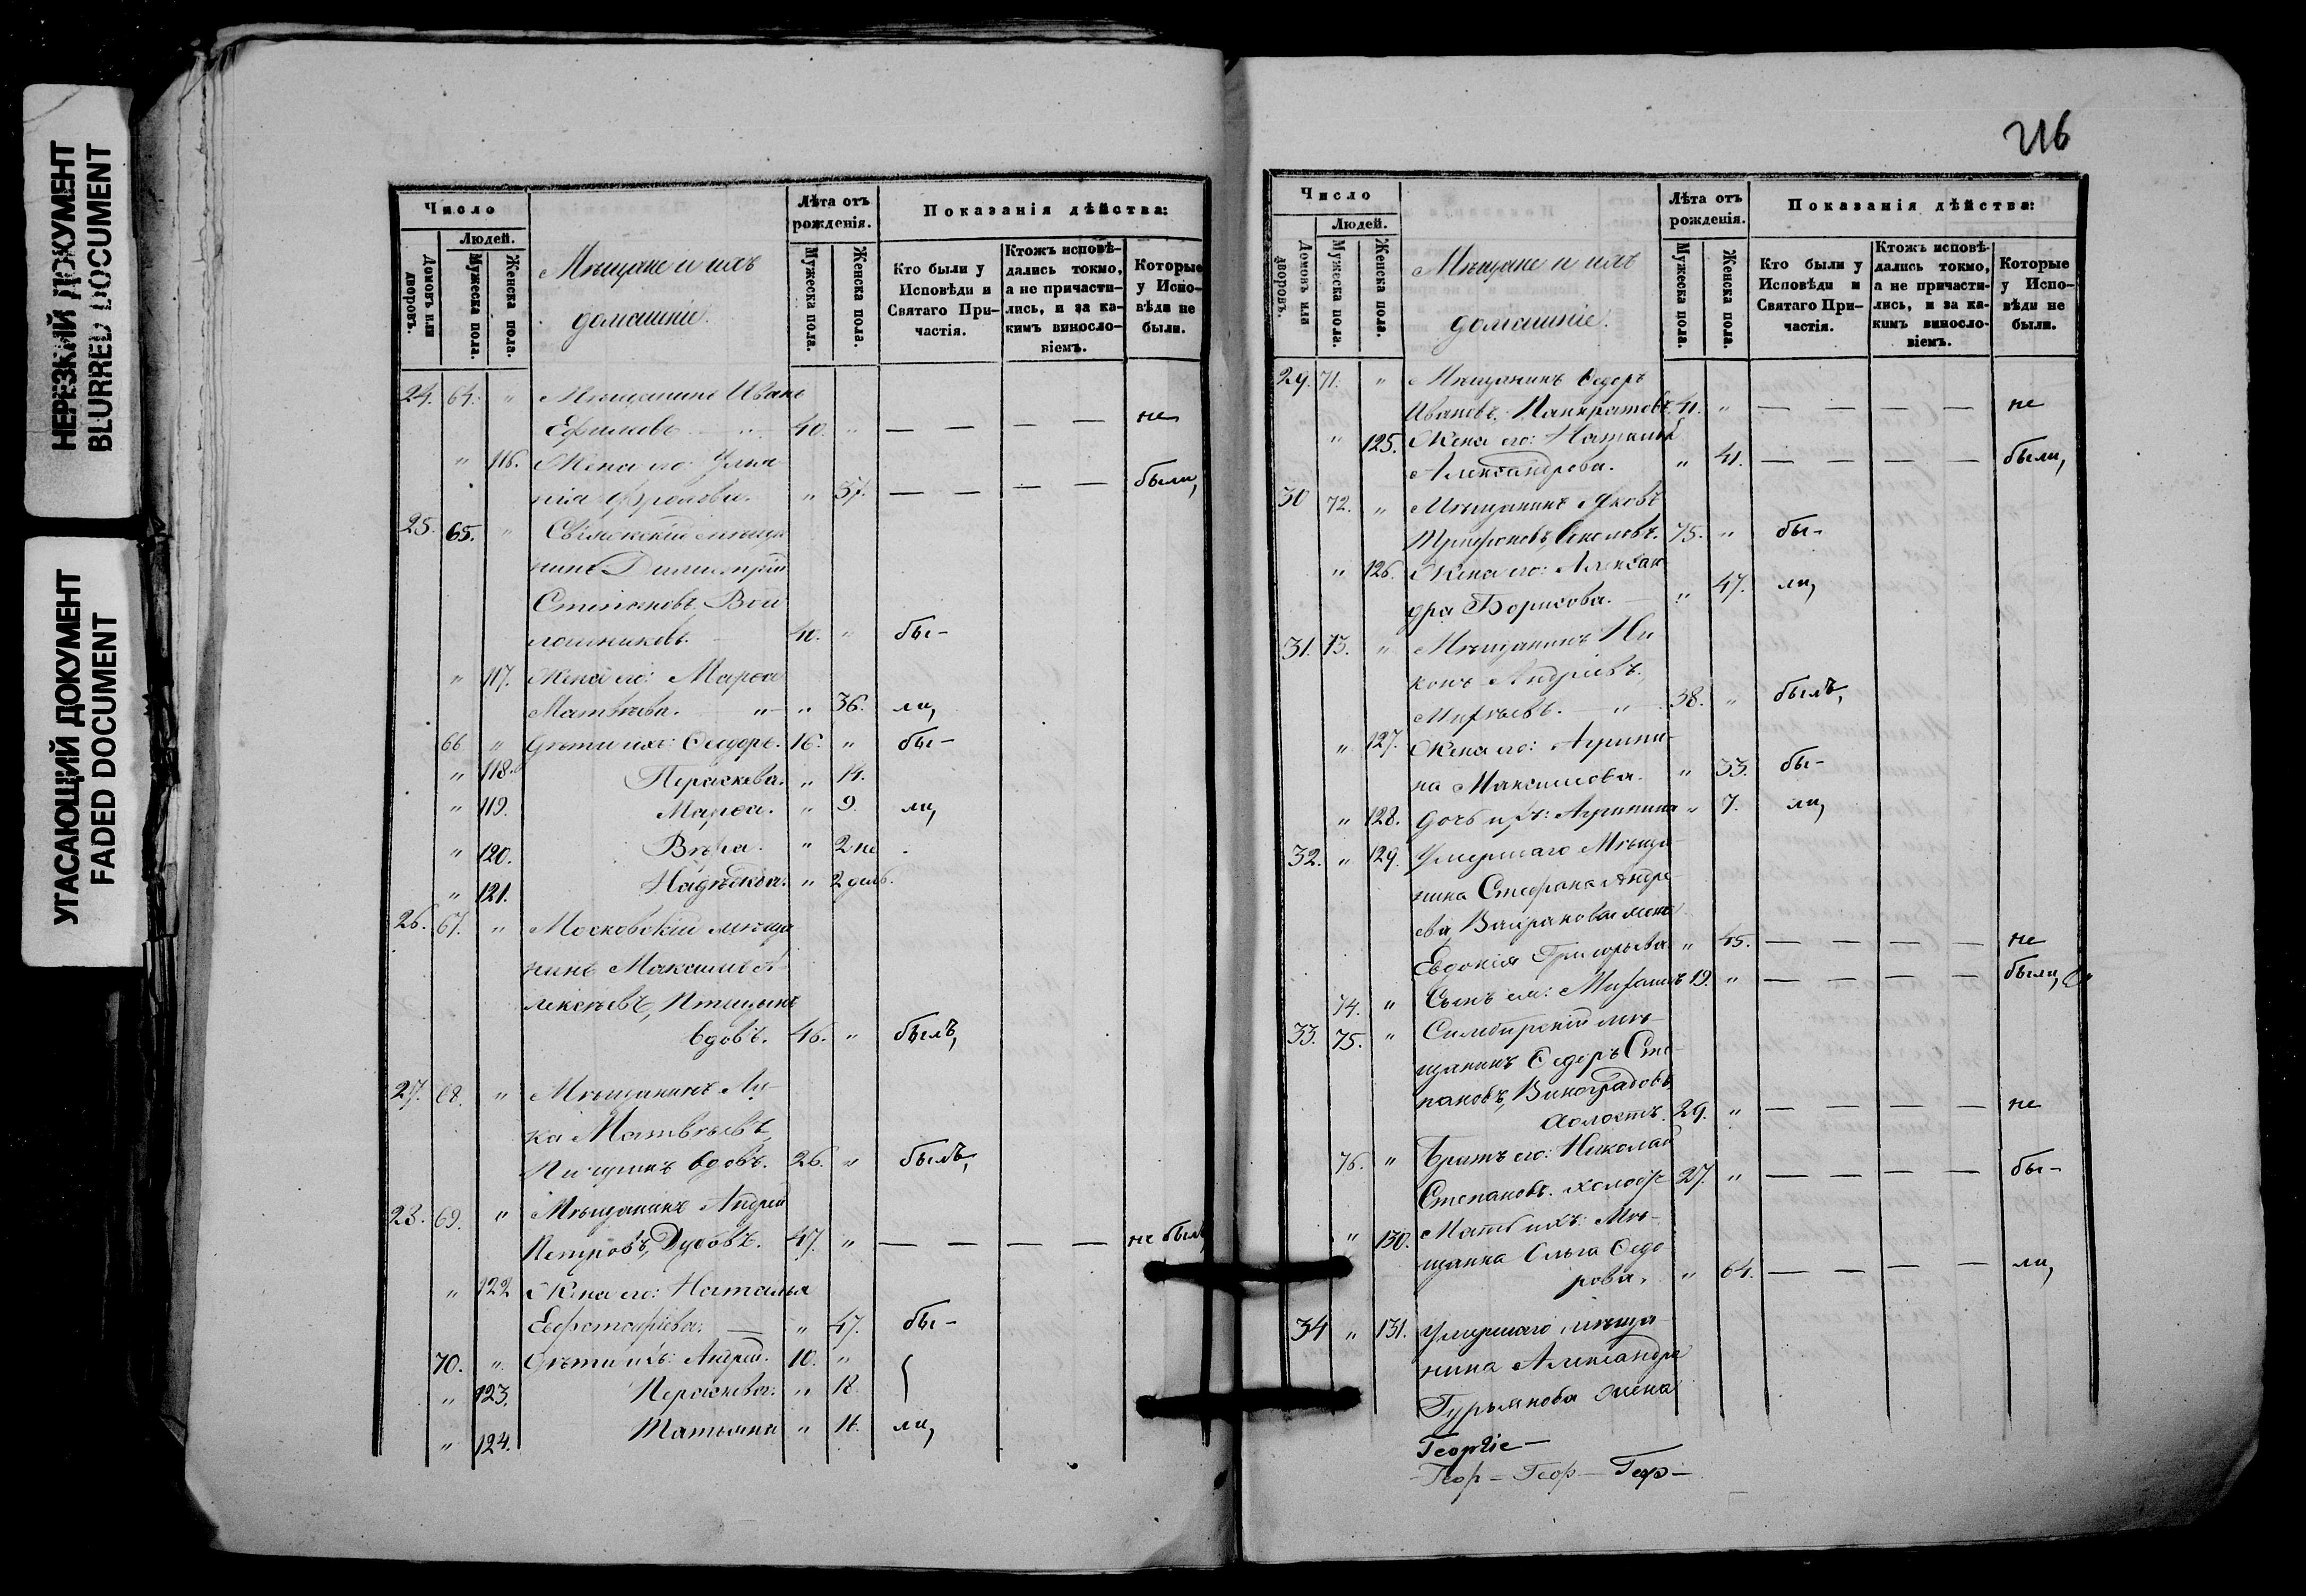 НЕРЕЗКИЙ ДОКУМЕНТ
BLURRED DOCUMENT
УГАСАЮЩИЙ ДОКУМЕНТ
FADED DOCUMENT
Число
Людей.
Домовъ или дворовъ.
Мужеска пола.
Женска пола.
Мѣщане и ихъ
домашніе.
Лѣта отъ рожденія.
Мужеска пола.
Женска пола.
Показанія дѣйства:
Кто были у Исповѣди и Святаго Причастія.
Ктожъ исповѣдались токмо, а не причастились, и за какимъ винословіемъ.
Которые у Исповѣди не были.
24. 64. " Мѣщанинъ Иванъ
Ефимовъ " 40. " — — — — не
" 116. Жена его: Улья
нія Фролова. " 37. — — — — были,
25. 65. "
нинъ Димитрій
Степановъ
40. " бы-
" 117. Жена его: Марѳа
Матвѣева. " " 36. ли,
66 " Дѣти ихъ: Ѳеодоръ. 16. " бы-
" 118. Параскева. " 14.
" 119. Марѳа. " 9. ли,
" 120. Вѣра. " 2 не
" 121. Надѣжда. "
26. 67. " Московскій мѣща
нинъ Максимъ А
лексѣевъ, Птицынъ
вдовъ. 46. " былъ,
27. 68. " Мѣщанинъ Лу
ка Матвѣевъ,
вдовъ. 26. " былъ,
28. 69. " Мѣщанинъ Андрей
Петровъ, Дубовъ. 47. " — — — — не былъ,
" 122 Жена его: Наталья
— " 47. бы-
70. " Дѣти ихъ: Андрей. 10. "
" 123. Параскева. " 18.
" 124. Татьяна " 11. ли,
216
Число
Людей.
Домовъ или дворовъ.
Мужеска пола.
Женска пола.
Мѣщане и ихъ
домашніе.
Лѣта отъ рожденія.
Мужеска пола.
Женска пола.
Показанія дѣйства:
Кто были у Исповѣди и Святаго Причастія.
Ктожъ исповѣдались токмо, а не причастились, и за какимъ винословіемъ.
Которые у Исповѣди не были.
29. 71. " Мѣщанинъ Ѳедоръ
Ивановъ, Панкратовъ. 41. " — — — — не
" 125. Жена его: Наталья
Александрова. " 41. — — — — были,
30 72. " Мѣщанинъ Яковъ
Трифоновъ, Соколовъ. 75. " бы-
" 126. Жена его: Алексан
дра Борисова. — " 47. ли,
31. 73. " Мѣщанинъ Ни
конъ Андреевъ,
Михѣевъ. — " 38. " былъ,
" 127. Жена его: Агрипи-
на Максимова. " 33. бы-
" 128. Дочь ихъ: Агрипина " 7. ли,
32. " 129. Умершаго Мѣща-
нина Стефана Андре-
ева, жена
Евдокія Григорьева. " 45. — — — — не
74. " Сынъ ея: Михаилъ 19. " — — — — были,
33. 75. " Симбирскій мѣ-
щанинъ Ѳедоръ Сте-
пановъ, Виноградовъ
холостъ. 29. " — — — — не
76. " Братъ его: Николай
Степановъ. холостъ 27. " — — — — бы-
" 130. Мать ихъ: Мѣ-
щанка Ольга Ѳедо
рова. " 64. — — — — ли,
34 " 131. Умершаго мѣща-
нина Александра
Гурьянова жена
Георгіе-
Геор- Геор- Геор-